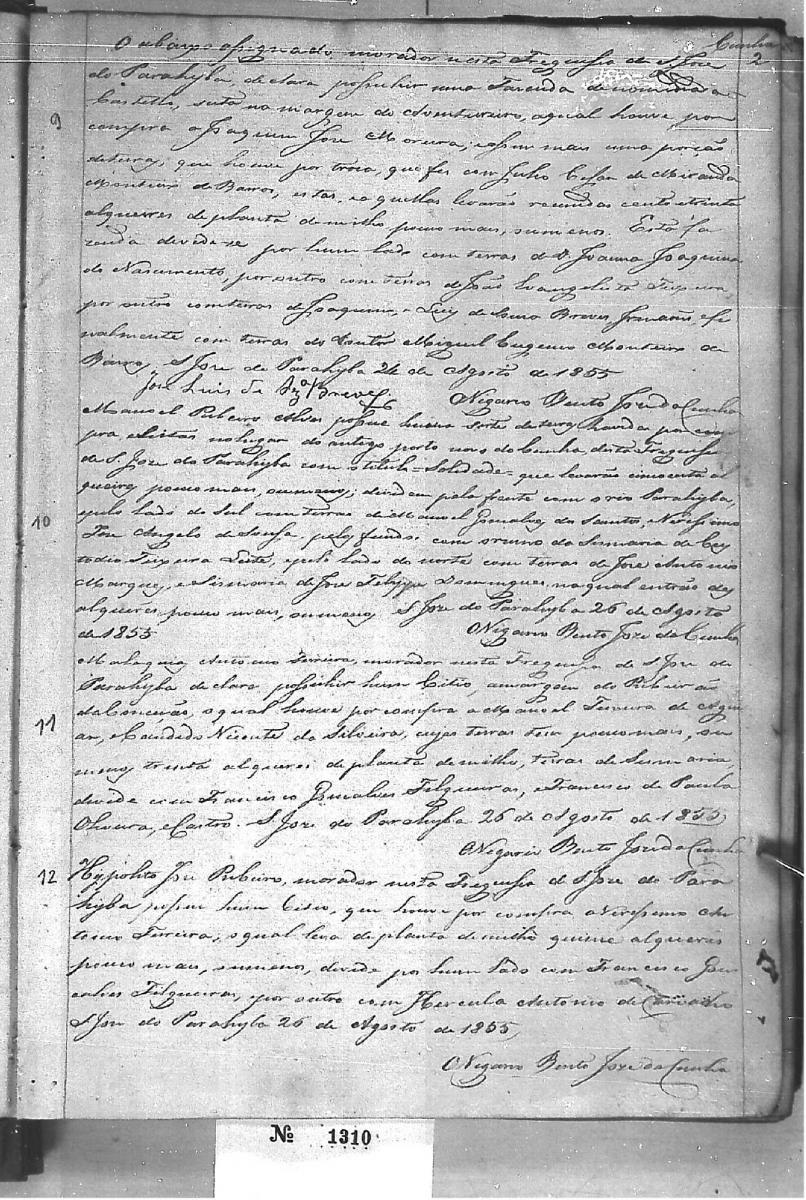 Cunha
2
O abaixo assignado morador nesta Freguesia de S. Jose
do Parahyba, declara possuhir uma Fazenda denominada
9
Castello, sita na margem do Aventureiro, a qual houve por
compra a Joaquim Jose Moreira; e assim mais uma porção
de terras, que houve por troca, que fes com Julio Cesar de Miranda
Monteiro de Barros, estas, e aquellas levarão reunidas cento e trinta
alqueires de planta de milho pouco mais, ou menos. Esta fa
zenda devide-se por hum lado com terras de D. Joanna Joaquina
do Nascimento, por outro com terras de João Evangelista Teixeira,
por outro com terras de Joaquim, e Luiz de Souza Breves, e fi
nalmente com terras do Doutor Miguel Eugenio Monteiro de
Barros. S. Jose do Parahyba 26 de Agosto de 1855
José Luis de Sza Breves. O Vigario Bento Jose da Cunha
Manoel Ribeiro Alves possue huma sorte de terras havida por com
pra, e sitas no lugar do antigo porto novo do Cunha, desta Freguesia
de S. Jose do Parahyba com o titulo = Soledade = que levarão cincoenta al
queires pouco mais, ou menos; dividem pela frente com o rio Parahyba,
10
e pelo lado do Sul com terras de Manoel Gonsalves dos Santos, Verissimo
Jose Angelo de Sousa, pelos fundos com o rumo da Sismaria de Cus
todio Teixeira Leite, e pelo lado do norte com terras de Jose Antonio
Marques, e Sismaria de Jose Felippe Domingues, na qual entrão des
alqueires pouco mais, ou menos. S. Jose do Parahyba 26 de Agosto
de 1855 O Vigario Bento Jose da Cunha
Malaquias Antonio Ferreira, morador nesta Freguesia de S. Jose do
Parahyba declara possuhir hum Citio, a margem do Ribeirão
11
da Conceição, o qual houve por compra a Manoel Teixeira de Agui
ar, e Candido Vicente da Silveira, cujas terras tem pouco mais, ou
menos trinta alqueires de planta de milho, terras de Sismaria,
devide com Francisco Gonsalves Filgueiras, e Francisco de Paula
Oliveira, e Castro. S. Jose do Parahyba 26 de Agosto de 1855
O Vigario Bento Jose da Cunha
12
Hypolito Jose Ribeiro, morador nesta Freguesia de S. Jose do Para
hyba possue hum Citio, que houve por compra a Verissimo An
tonio Ferreira; o qual leva de planta de milho quinse alqueires
pouco mais, ou menos, devide por hum lado com Francisco Gon
salves Filgueiras, e por outro com Hercula Antonio de Carvalho
S. Jose do Parahyba 26 de Agosto de 1855
O Vigario Bento Jose da Cunha
№ 1310